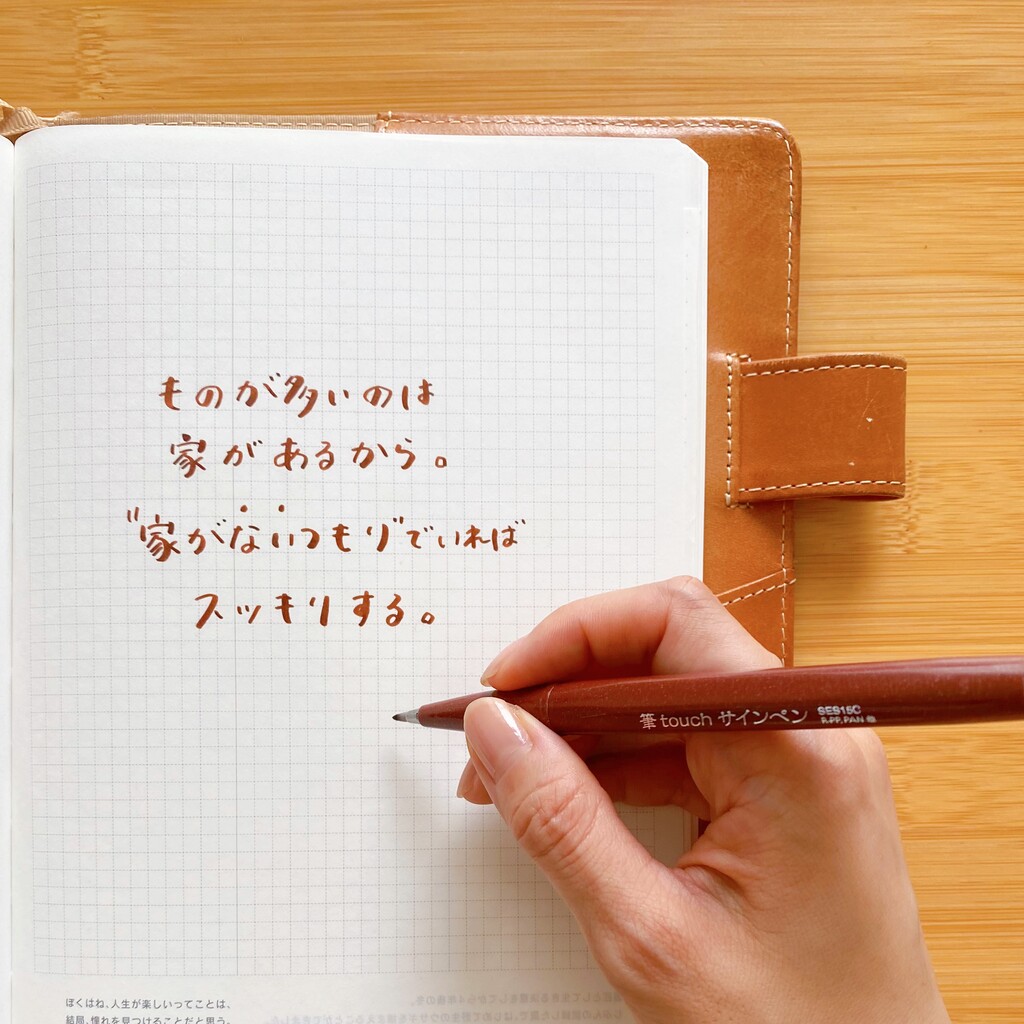 ものが多いのは
家があるから。
"家がないつもり"でいれば
スッキリする。
筆touchサインペン
SES15C
R-PP,PAN
ぼくはね、人生が楽しいってことは、
結局、憧れを見つけることだと思う。